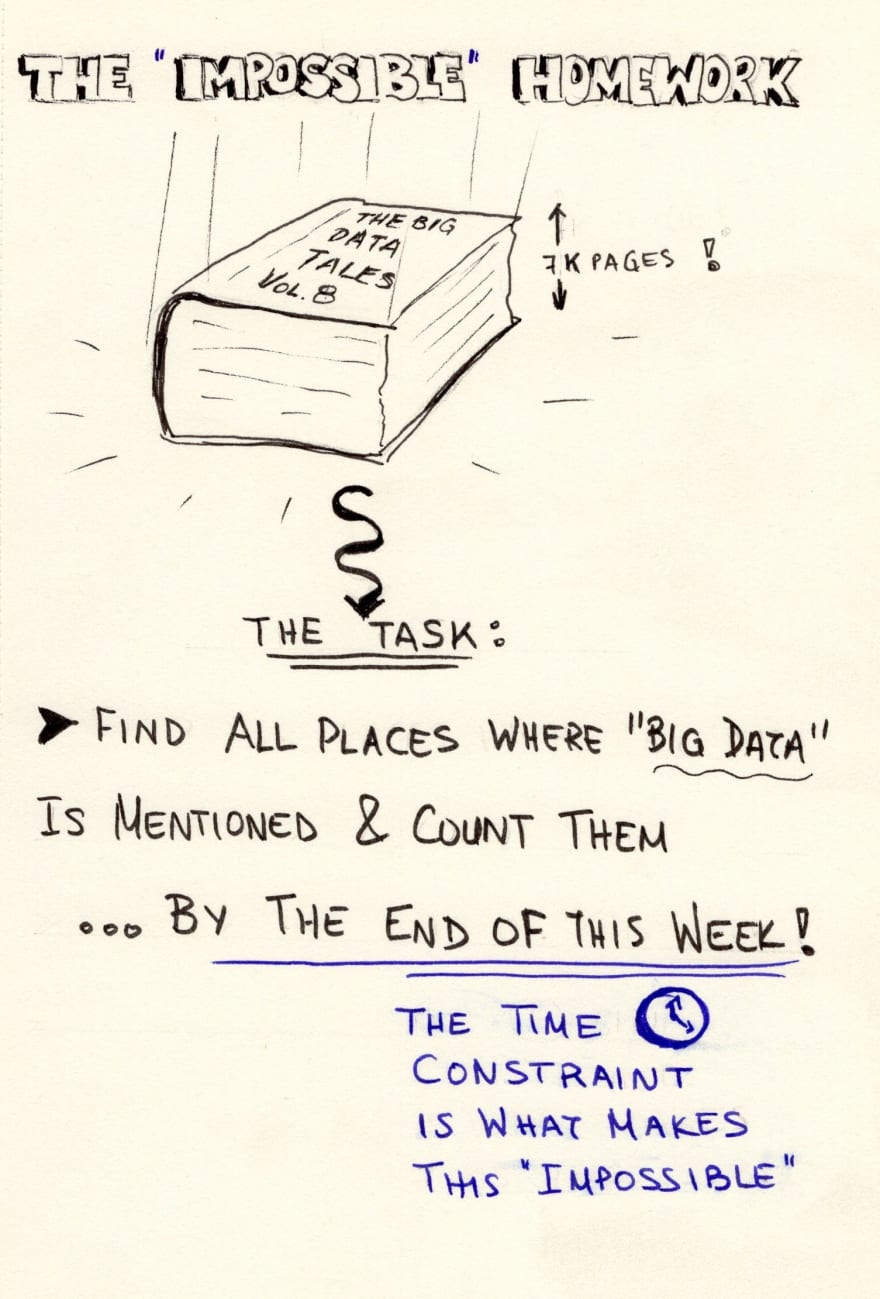 THE "IMPOSSIBLE" HOMEWORK
THE BIG
DATA
TALES
VOL. 8
7K PAGES !
THE TASK:
➤ FIND ALL PLACES WHERE "BIG DATA"
IS MENTIONED & COUNT THEM
... BY THE END OF THIS WEEK!
THE TIME
CONSTRAINT
IS WHAT MAKES
THIS "IMPOSSIBLE"